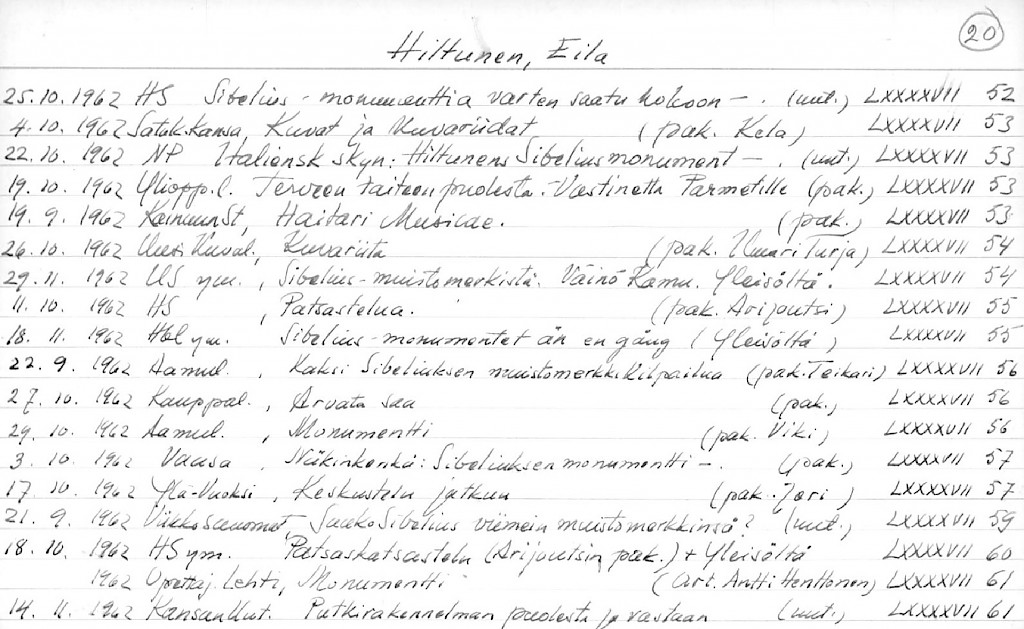 20
Hiltunen, Eila
25.10.1962 HS Sibelius-monumenttia varten saatu kokoon -. (uut.) LXXXXVII 52
4.10.1962 Satak.kansa, Kuvat ja kuvariidat (pak. Kela) LXXXXVII 53
22.10.1962 NP Italiensk skyn: Hiltunens Sibeliusmonument -. (uut.) LXXXXVII 53
19.10.1962 Yliopp.l. Terveen taiteen puolesta. Vastinetta Parmetille (pak.) LXXXXVII 53
19.9.1962 KainuunSt, Haitari Musicae. (pak.) LXXXXVII 53
26.10.1962 Uusi Kuval., Kuvariita (pak. Ilmari Turja) LXXXXVII 54
29.11.1962 US ym., Sibelius-muistomerkistä. Väinö Kamu. Yleisöltä. LXXXXVII 54
11.10.1962 HS, Patsastelua. (pak. Arijoutsi) LXXXXVII 55
18.11.1962 Hbl ym. Sibelius-monumentet än en gång (Yleisöltä) LXXXXVII 55
22.9.1962 Aamul., Kaksi Sibeliuksen muistomerkkikilpailua (pak. Teikari) LXXXXVII 56
27.10.1962 Kauppal., Arvata saa (pak.) LXXXXVII 56
29.10.1962 Aamul., Monumentti (pak. Viki) LXXXXVII 56
3.10.1962 Vaasa, Näkinkenkä: Sibeliuksen monumentti -. (pak.) LXXXXVII 57
17.10.1962 Ylä-Vuoksi, Keskustelu jatkuu (pak. Jori) LXXXXVII 57
21.9.1962 Viikkosanomat, Saako Sibelius viimein muistomerkkinsä? (uut.) LXXXXVII 59
18.10.1962 HS ym. Patsaskatsastelu (Arijoutsin pak.) + Yleisöltä LXXXXVII 60
1962 Opettaj. Lehti, Monumentti (art. Antti Henttonen) LXXXXVII 61
14.11.1962 Kansan Uut. Putkirakennelman puolesta ja vastaan (uut.) LXXXXVII 61